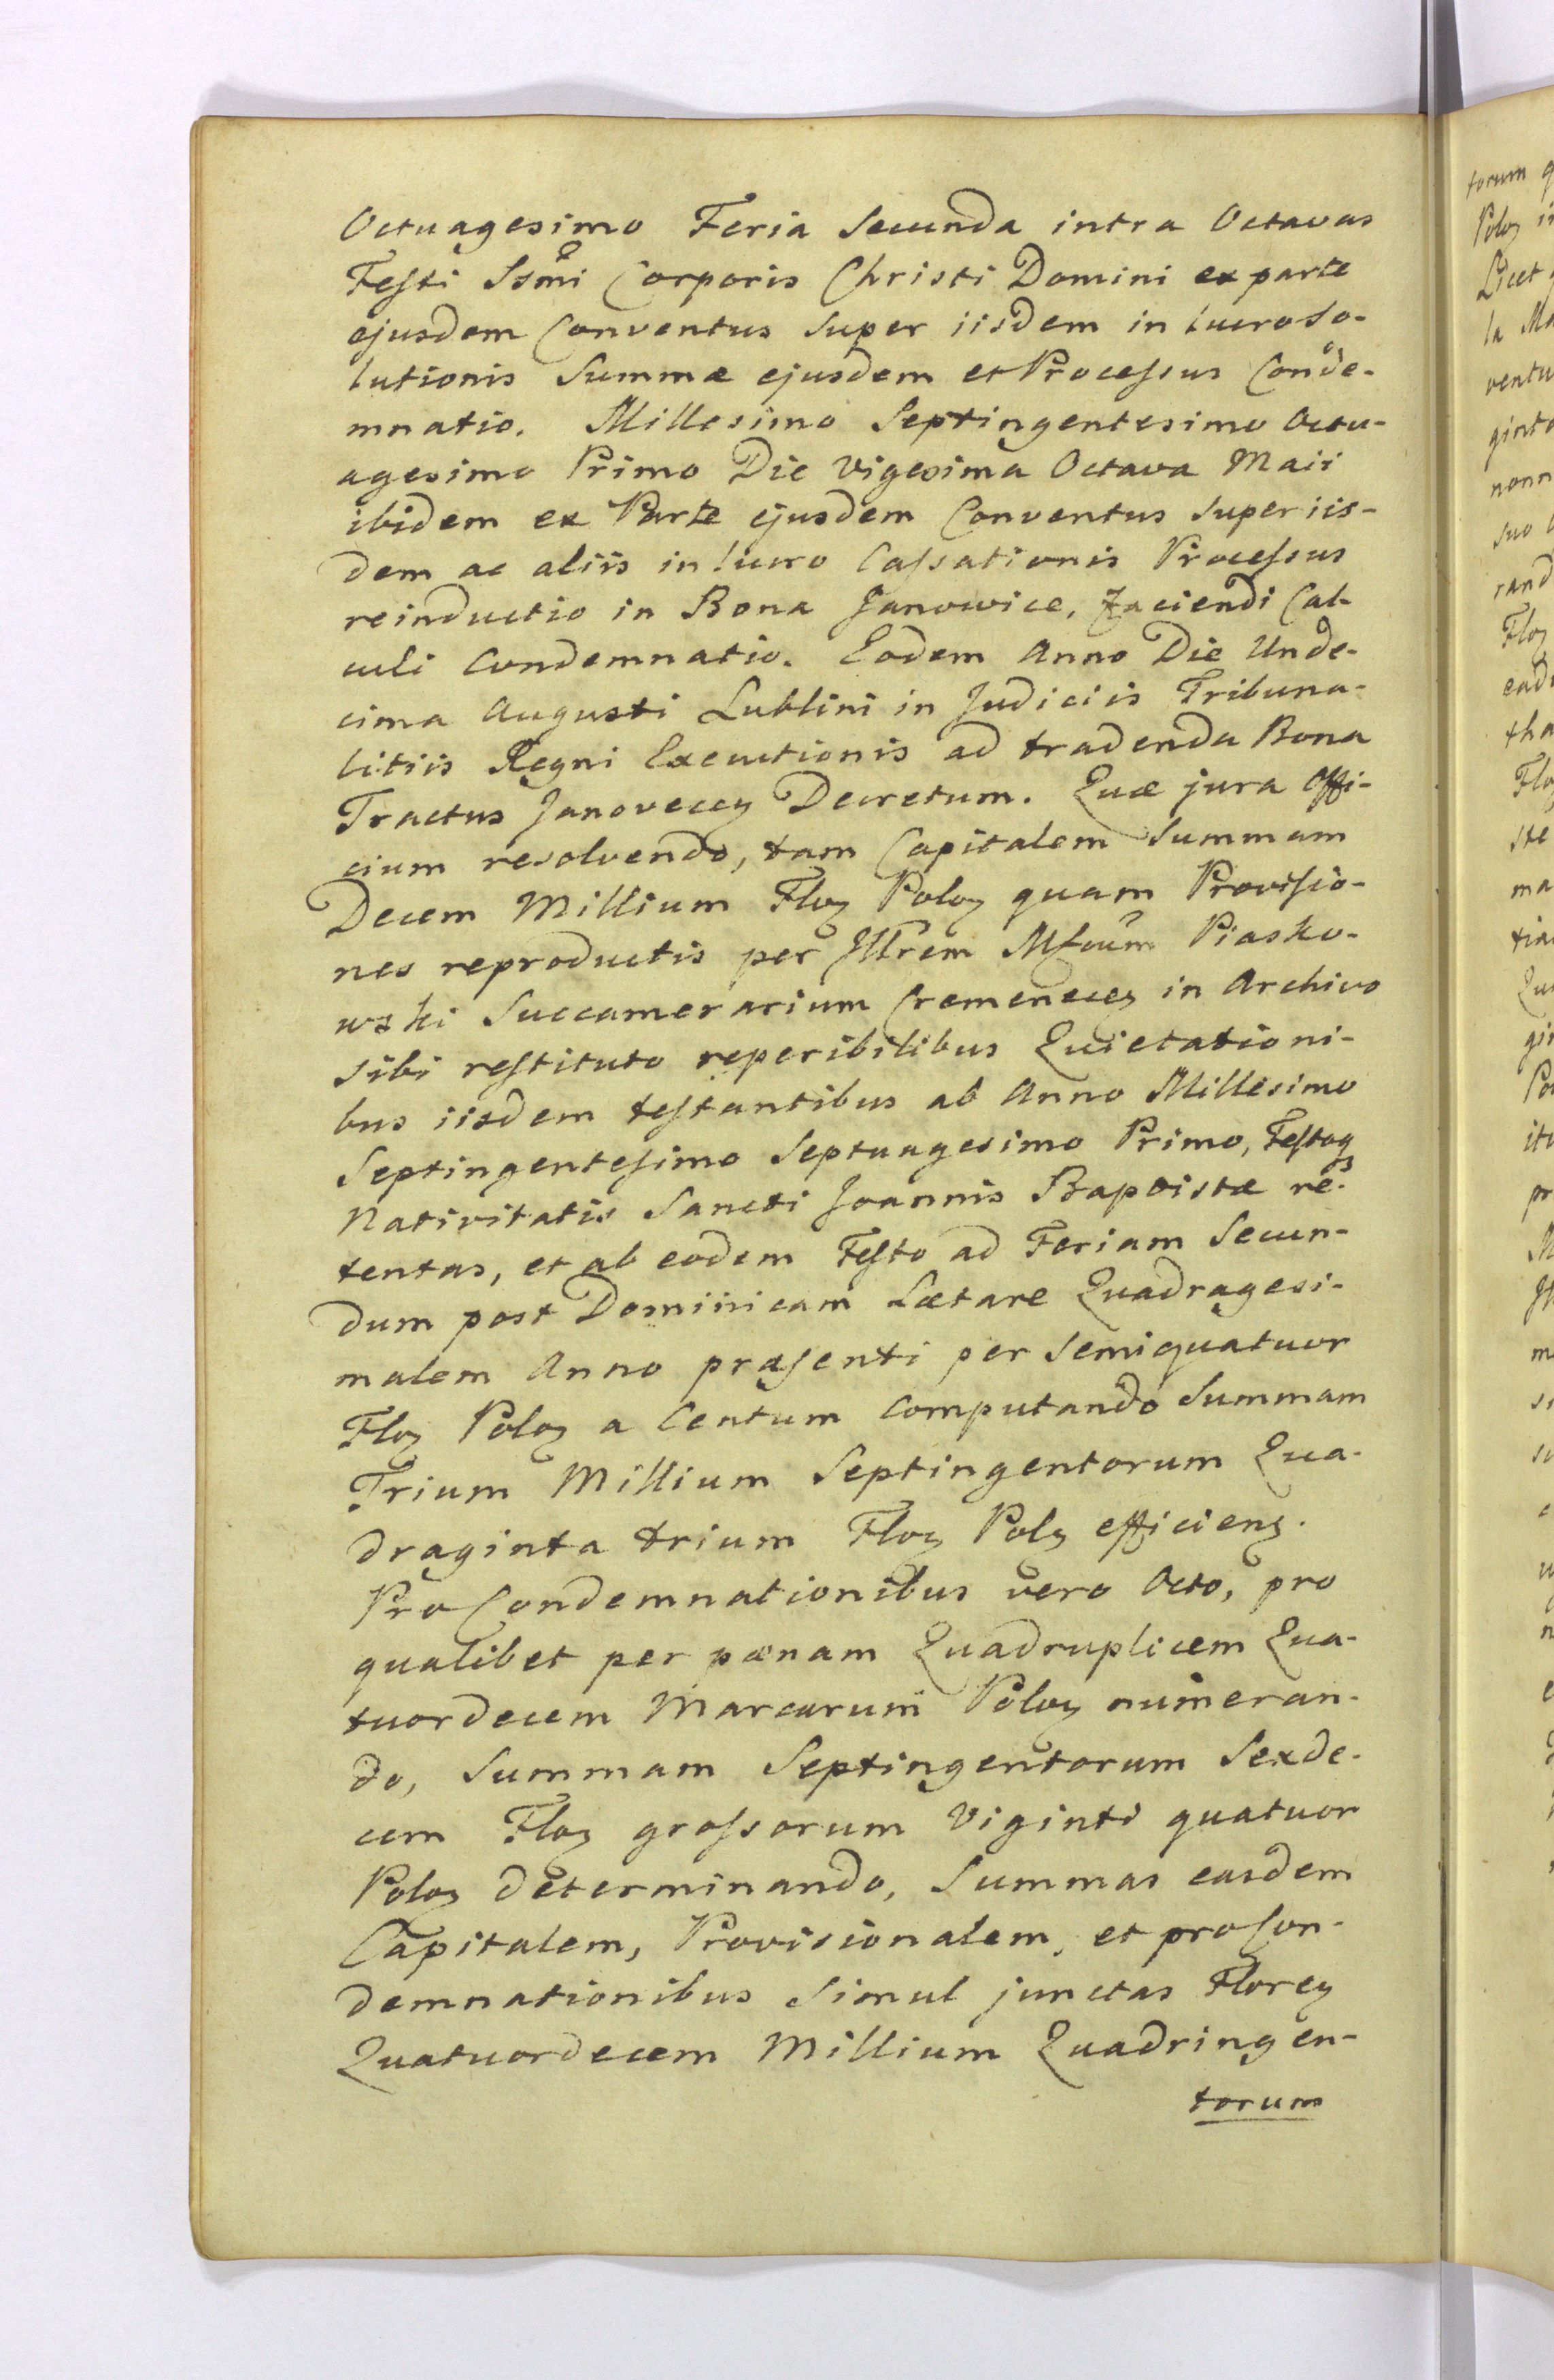 Octuagesimo Feria Secunda intra Octavas
Festi Ssmi Corporis Christi Domini ex parte
ejusdem Conventus super iisdem in lucro so-
lutionis Summæ ejusdem et Processus Conde-
mnatio. Millesimo Septingentesimo Octu-
agesimo Primo Die Vigesima Octava Maii
ibidem ex Parte ejusdem Conventus super iis-
dem ac aliis in lucro Cassationis Processus
reinductio in Bona Janowice, faciendi Cal-
culi Condemnatio. Eodem Anno Die Unde-
cima Augusti Lublini in Judiciis Tribuna-
litiis Regni Executionis ad tradenda Bona
Tractus Janovecen Decretum. Quæ jura Offi-
cium resolvendo, tam Capitalem Summam
Decem Millium Flor Polon quam Provisio-
nes reproductis per Illrem Mfcum Piasko-
wski Succamerarium Cremenecen in Archivo
sibi restituto reperibilibus Quietationi-
bus iisdem testantibus ab Anno Millesimo
Septingentesimo Septuagesimo Primo, Festoq3
Nativitatis Sancti Joannis Baptistæ re-
tentas, et ab eodem Festo ad Feriam Secun-
dum post Dominicam Lætare Quadragesi-
malem Anno præsenti per Semiquatuor
Flor Polon a Centum computando Summam
Trium Millium Septingentorum Qua-
draginta trium Flor Poln efficien.
Pro Condemnationibus vero Octo, pro
qualibet per pænam Quadruplicem Qua-
tuordecem Marcarum Polon numeran-
do, Summam Septingentorum Sexde-
cem Flor grossorum Viginti quatuor
Polon determinando, Summas easdem
Capitalem, Provisionalem, et pro Con-
demnationibus Simul junctas Floren
Quatuordecem Millium Quadringen-
torum